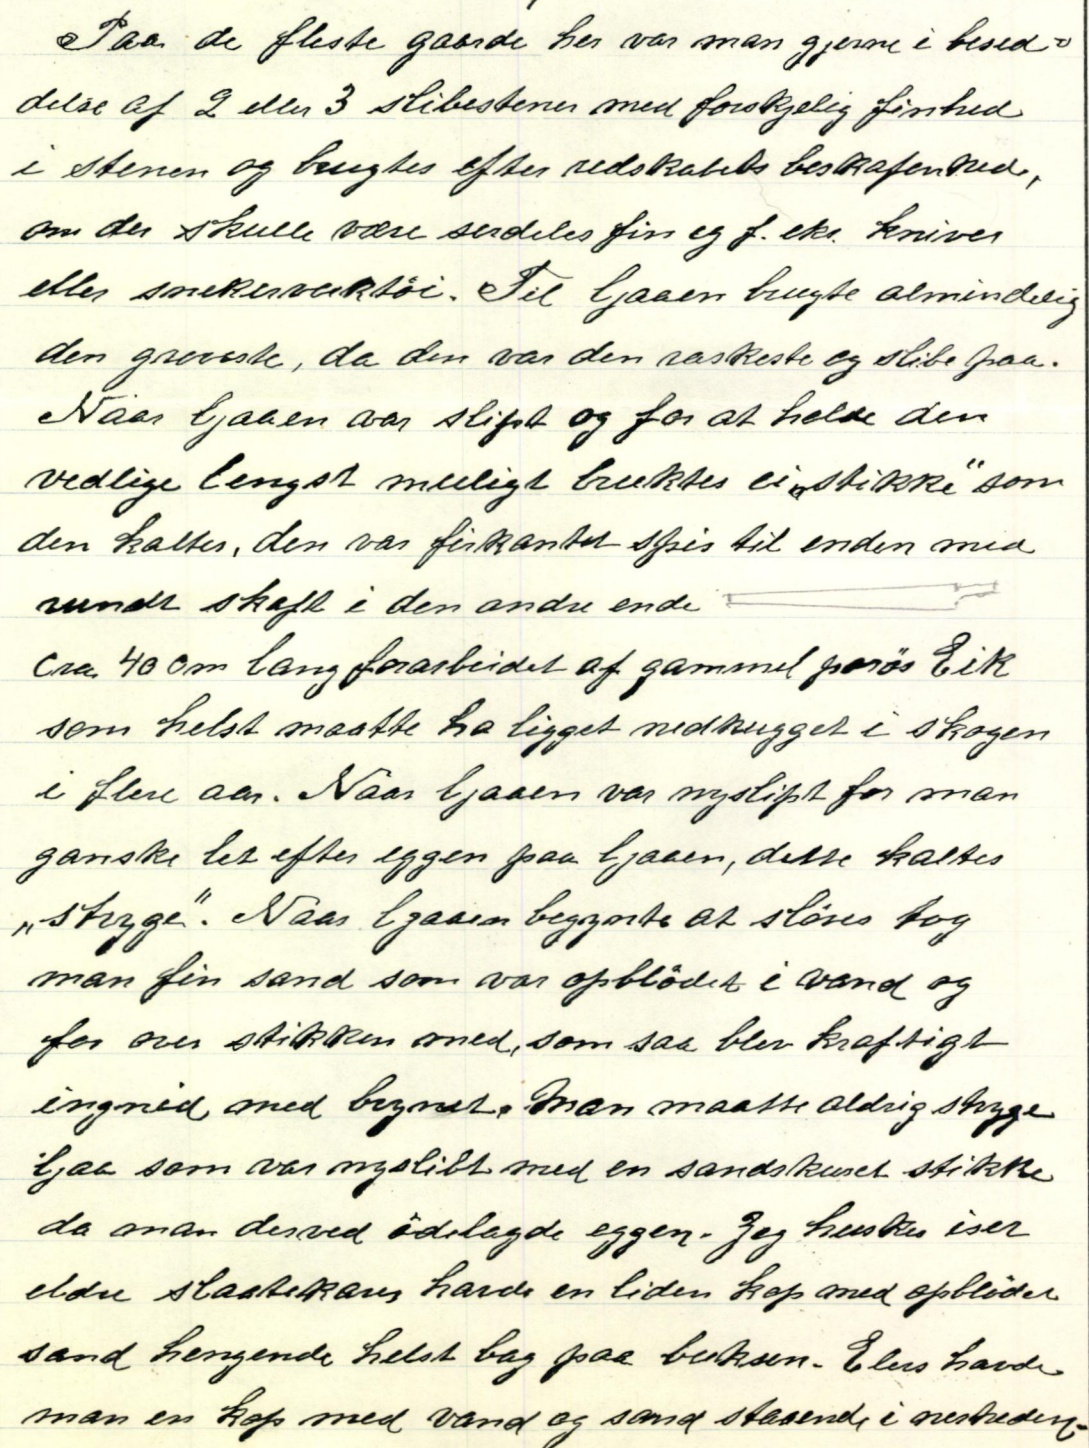 Paa de fleste gaarde her var man gjerne i besed-
delse af 2 eller 3 slibestener med forskjelig finhed
i stenen og brugtes efter redskabets beskafenhed,
om der skulle være serdeles fin eg f. eks. kniver
eller snekerverktöi. Til ljaaen brugte almindelig
den groveste, da den var den raskeste og slibe paa.
Naar ljaaen var slipt og for at holde den
vedlige lengst muligt bruktes ei „stikke" som
den kaltes, den var firkantet spis til enden med
rundt skaft i den andre ende
Cra 40 cm lang forarbeidet af gammel porös Eik
som helst maatte ha ligget nedhugget i skogen
i flere aar. Naar ljaaen var nyslipt for man
ganske let efter eggen paa ljaaen, dette kaltes
„stryge". Naar ljaaen begynte at slöves tog
man fin sand som var opblödet i vand og
for over stikken med, som saa blev kraftigt
ingnid med brynet. Man maatte aldrig stryge
ljaa som var nyslibt med en sandskuret stikke
da man derved ödelagde eggen. Jeg husker iser
eldre slaatekarer havde en liden kop med opblödet
sand hengende helst bag paa buksen. Elers havde
man en kop med vand og sand staaende i nerheden.